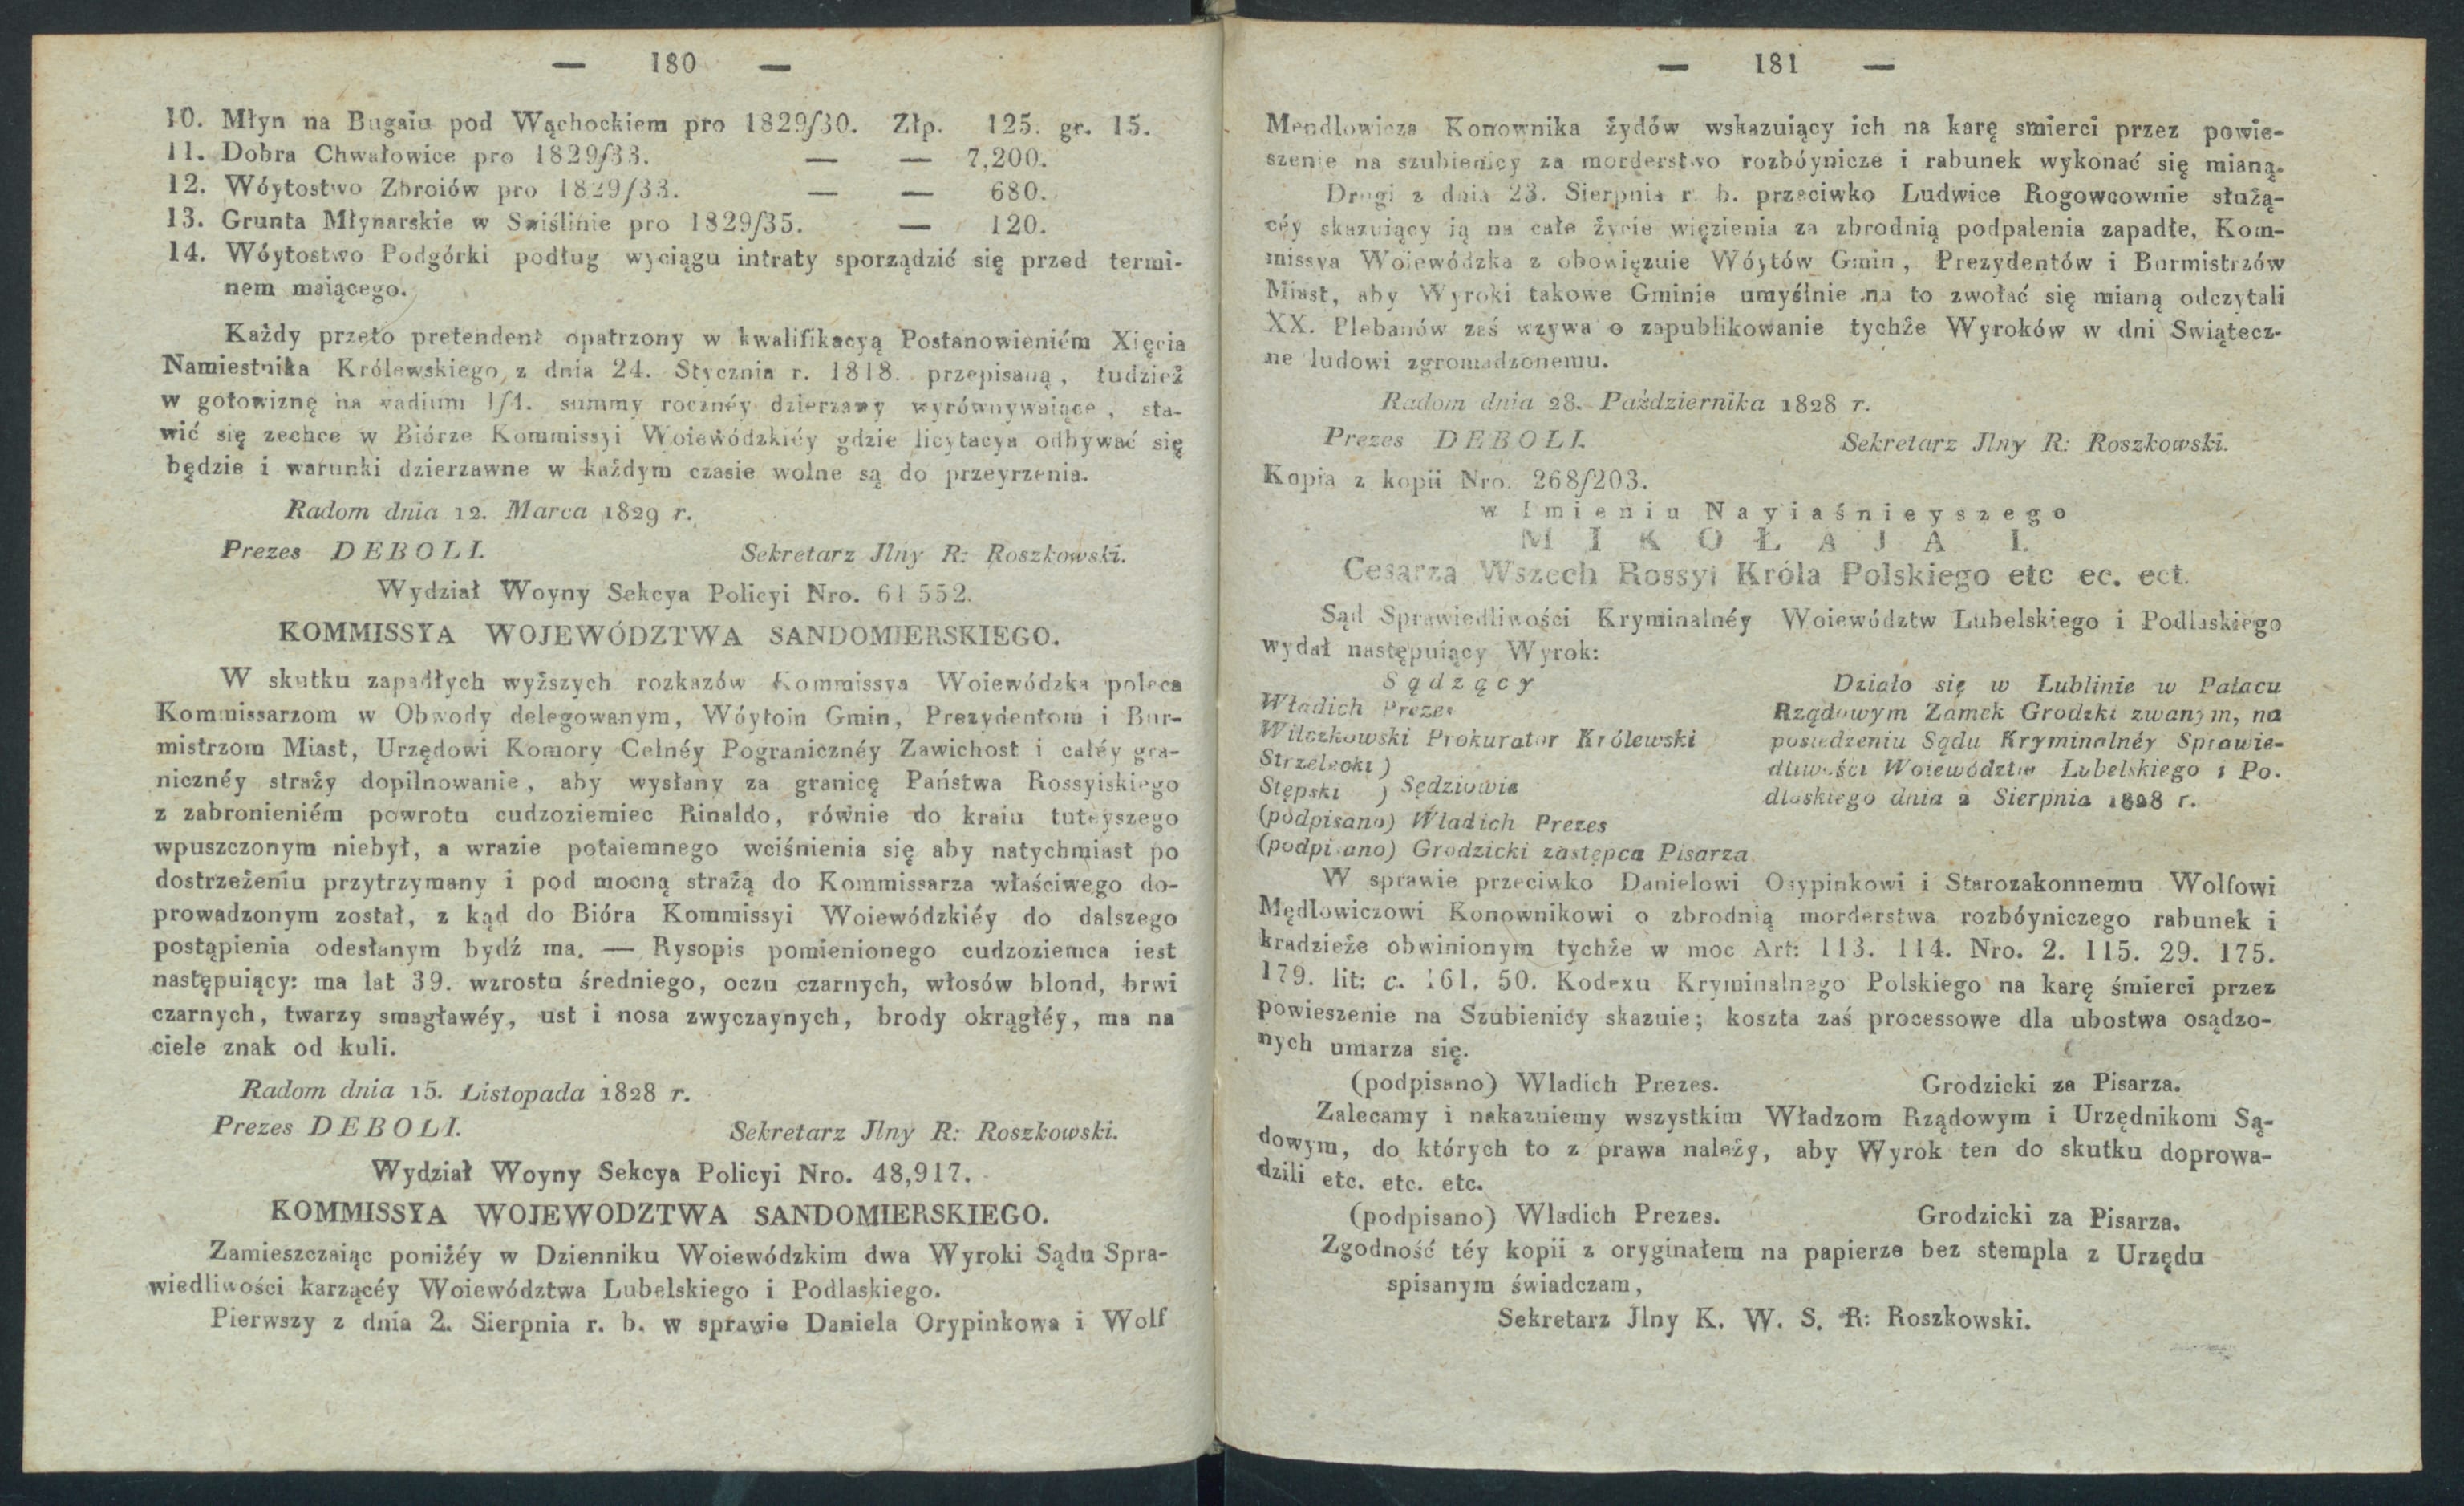 — 180 —
10. Młyn na Bugaiu pod Wąchockiem pro 1829/30. Złp. 125. gr. 15.
11. Dobra Chwałowice pro 1829/33. — — 7,200.
12. Wóytostwo Zbroiów pro 1829/33. — — 680.
13. Grunta Młynarskie w Swiślinie pro 1829/35. — 120.
14. Wóytostwo Podgórki podług wyciągu intraty sporządzić się przed termi-
nem maiącego.
Każdy przeto pretendent opatrzony w kwalifikacyą Postanowieniém Xięcia
Namiestnika Królewskiego z dnia 24. Stycznia r. 1818. przepisaną, tudzież
w gotowiznę na vadium 1/4. summy rocznéy dzierzawy wyrównywaiące, sta-
wić się zechce w Biórze Kommissyi Woiewódzkiéy gdzie licytacya odbywać się
będzie i warunki dzierzawne w każdym czasie wolne są do przeyrzenia.
Radom dnia 12. Marca 1829 r.
Prezes DEBOLI. Sekretarz Jlny R: Roszkowski.
Wydział Woyny Sekcya Policyi Nro. 61 552.
KOMMISSYA WOJEWÓDZTWA SANDOMIERSKIEGO.
W skutku zapadłych wyższych rozkazów Kommissya Woiewódzka poleca
Kommissarzom w Obwody delegowanym, Wóytoin Gmin, Prezydentom i Bur-
mistrzom Miast, Urzędowi Komory Celnéy Pogranicznéy Zawichost i całéy gra-
nicznéy straży dopilnowanie, aby wysłany za granicę Państwa Rossyiskiego
z zabronieniém powrotu cudzoziemiec Rinaldo, równie do kraiu tuteyszego
wpuszczonym niebył, a wrazie potaiemnego wciśnienia się aby natychmiast po
dostrzeżeniu przytrzymany i pod mocną strażą do Kommissarza właściwego do-
prowadzonym został, z kąd do Bióra Kommissyi Woiewódzkiéy do dalszego
postąpienia odesłanym bydź ma. — Rysopis pomienionego cudzoziemca iest
następuiący: ma lat 39. wzrostu średniego, oczu czarnych, włosów blond, brwi
czarnych, twarzy smagławéy, ust i nosa zwyczaynych, brody okrągłéy, ma na
ciele znak od kuli.
Radom dnia 15. Listopada 1828 r.
Prezes DEBOLI. Sekretarz Jlny R: Roszkowski.
Wydział Woyny Sekcya Policyi Nro. 48,917.
KOMMISSYA WOJEWODZTWA SANDOMIERSKIEGO.
Zamieszczaiąc poniżéy w Dzienniku Woiewódzkim dwa Wyroki Sądu Spra-
wiedliwości karzącéy Woiewództwa Lubelskiego i Podlaskiego.
Pierwszy z dnia 2. Sierpnia r. b. w sprawie Daniela Orypinkowa i Wolf
— 181 —
Mendlowicza Konownika żydów wskazuiący ich na karę smierci przez powie-
szenie na szubienicy za morderstwo rozbóynicze i rabunek wykonać się mianą.
Drugi z dnia 23. Sierpnia r. b. przeciwko Ludwice Rogowcownie służą-
céy skazuiący ią na całe życie więzienia za zbrodnią podpalenia zapadłe, Kom-
missya Woiewódzka z obowięzuie Wóytów Gmin, Prezydentów i Burmistrzów
Miast, aby Wyroki takowe Gminie umyślnie na to zwołać się mianą odczytali
XX. Plebanów zaś wzywa o zapublikowanie tychże Wyroków w dni Swiątecz-
ne ludowi zgromadzonemu.
Radom dnia 28. Października 1828 r.
Prezes DEBOLI. Sekretarz Jlny R: Roszkowski.
Kopia z kopii Nro. 268/203.
w Imieniu Nayiaśnieyszego
MIKOŁAJA I.
Cesarza Wszech Rossyi Króla Polskiego etc ec. ect.
Sąd Sprawiedliwości Kryminalnéy Woiewództw Lubelskiego i Podlaskiego
wydał następuiący Wyrok:
Sądzący
Władich Prezes
Wilczkowski Prokurator Królewski
Strzelecki )
Stępski ) Sędziowie
(podpisano) Władich Prezes
(podpisano) Grodzicki zastępca Pisarza
Działo się w Lublinie w Pałacu
Rządowym Zamek Grodzki zwanym, na
posiedzeniu Sądu Kryminalnéy Sprawie-
dliwości Woiewództw Lubelskiego i Po-
dlaskiego dnia 2 Sierpnia 1828 r.
W sprawie przeciwko Danielowi Osypinkowi i Starozakonnemu Wolfowi
Mędlowiczowi Konownikowi o zbrodnią morderstwa rozbóyniczego rabunek i
kradzieże obwinionym tychże w moc Art: 113. 114. Nro. 2. 115. 29. 175.
179. lit: c. 161. 50. Kodexu Kryminalnego Polskiego na karę śmierci przez
powieszenie na Szubienicy skazuie; koszta zaś processowe dla ubostwa osądzo-
nych umarza się.
(podpisano) Wladich Prezes. Grodzicki za Pisarza.
Zalecamy i nakazuiemy wszystkim Władzom Rządowym i Urzędnikom Są-
dowym, do których to z prawa należy, aby Wyrok ten do skutku doprowa-
dzili etc. etc. etc.
(podpisano) Wladich Prezes. Grodzicki za Pisarza.
Zgodność téy kopii z oryginałem na papierze bez stempla z Urzędu
spisanym świadczam,
Sekretarz Jlny K. W. S. R: Roszkowski.